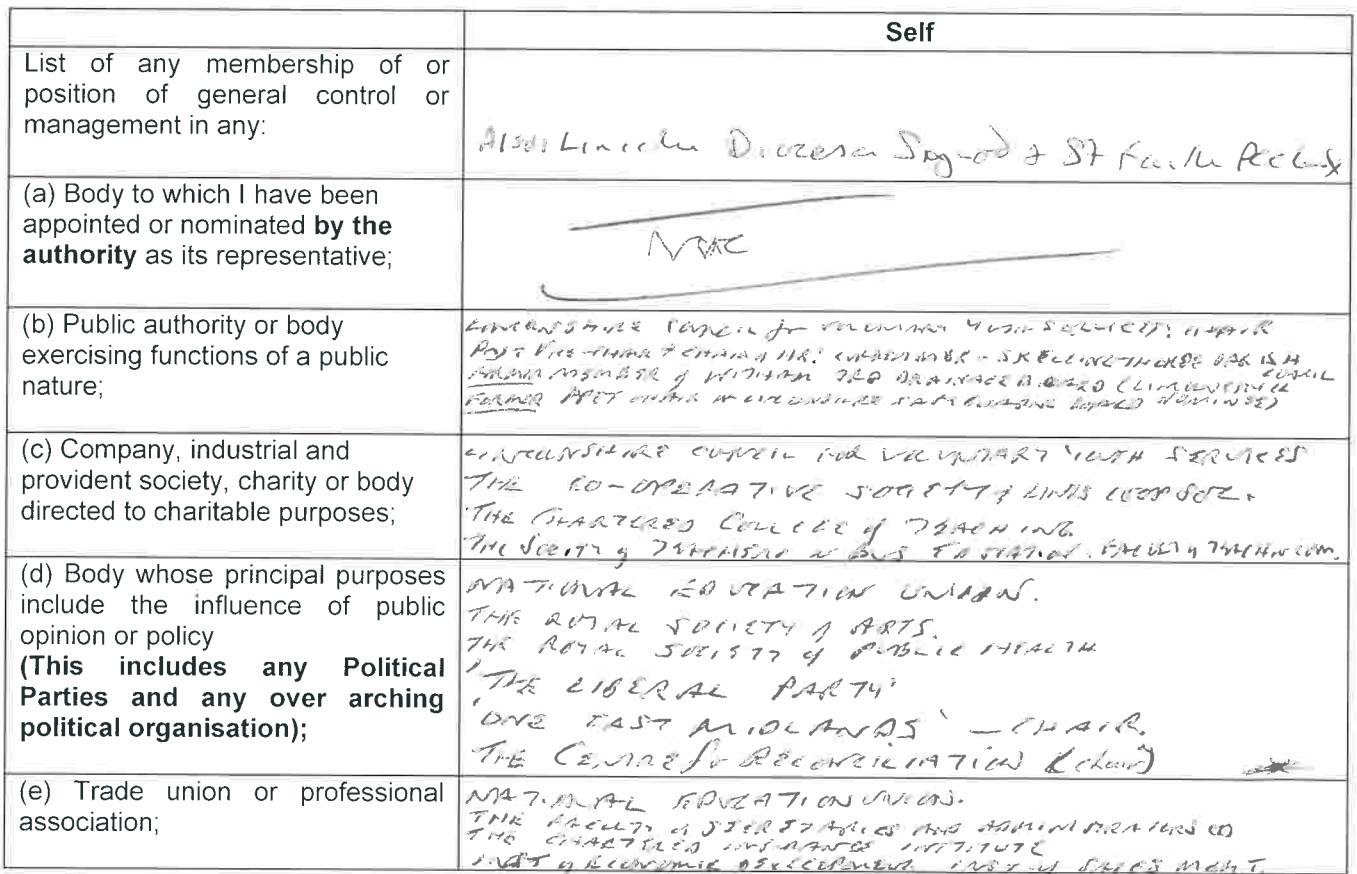 Self
List of any membership of or
position of general control or
management in any:
Also: Lincoln Diocesan Synod & St Faith
(a) Body to which I have been
appointed or nominated by the
authority as its representative;
(b) Public authority or body
exercising functions of a public
nature;
LINCOLNSHIRE COUNCIL for VOLUNTARY YOUTH SERVICES: CHAIR
SKELLINGTHORPE PARISH COUNCIL
MEMBER of WITHAM 3RD DRAINAGE BOARD
FORMER
(c) Company, industrial and
provident society, charity or body
directed to charitable purposes;
LINCOLNSHIRE COUNCIL FOR VOLUNTARY YOUTH SERVICES
THE CO-OPERATIVE SOCIETY
THE CHARTERED COLLEGE of TEACHING
THE Society of
(d) Body whose principal purposes
include the influence of public
opinion or policy
(This includes any Political
Parties and any over arching
political organisation);
NATIONAL EDUCATION UNION.
THE ROYAL SOCIETY of ARTS.
THE ROYAL SOCIETY of PUBLIC HEALTH
'THE LIBERAL PARTY'
'ONE EAST MIDLANDS' - CHAIR.
THE CENTRE for RECONCILIATION (chair)
(e) Trade union or professional
association;
NATIONAL EDUCATION UNION.
THE FACULTY of SECRETARIES AND ADMINISTRATORS
THE CHARTERED INSURANCE INSTITUTE
INST of ECONOMIC DEVELOPMENT INST of SALES MGMT.